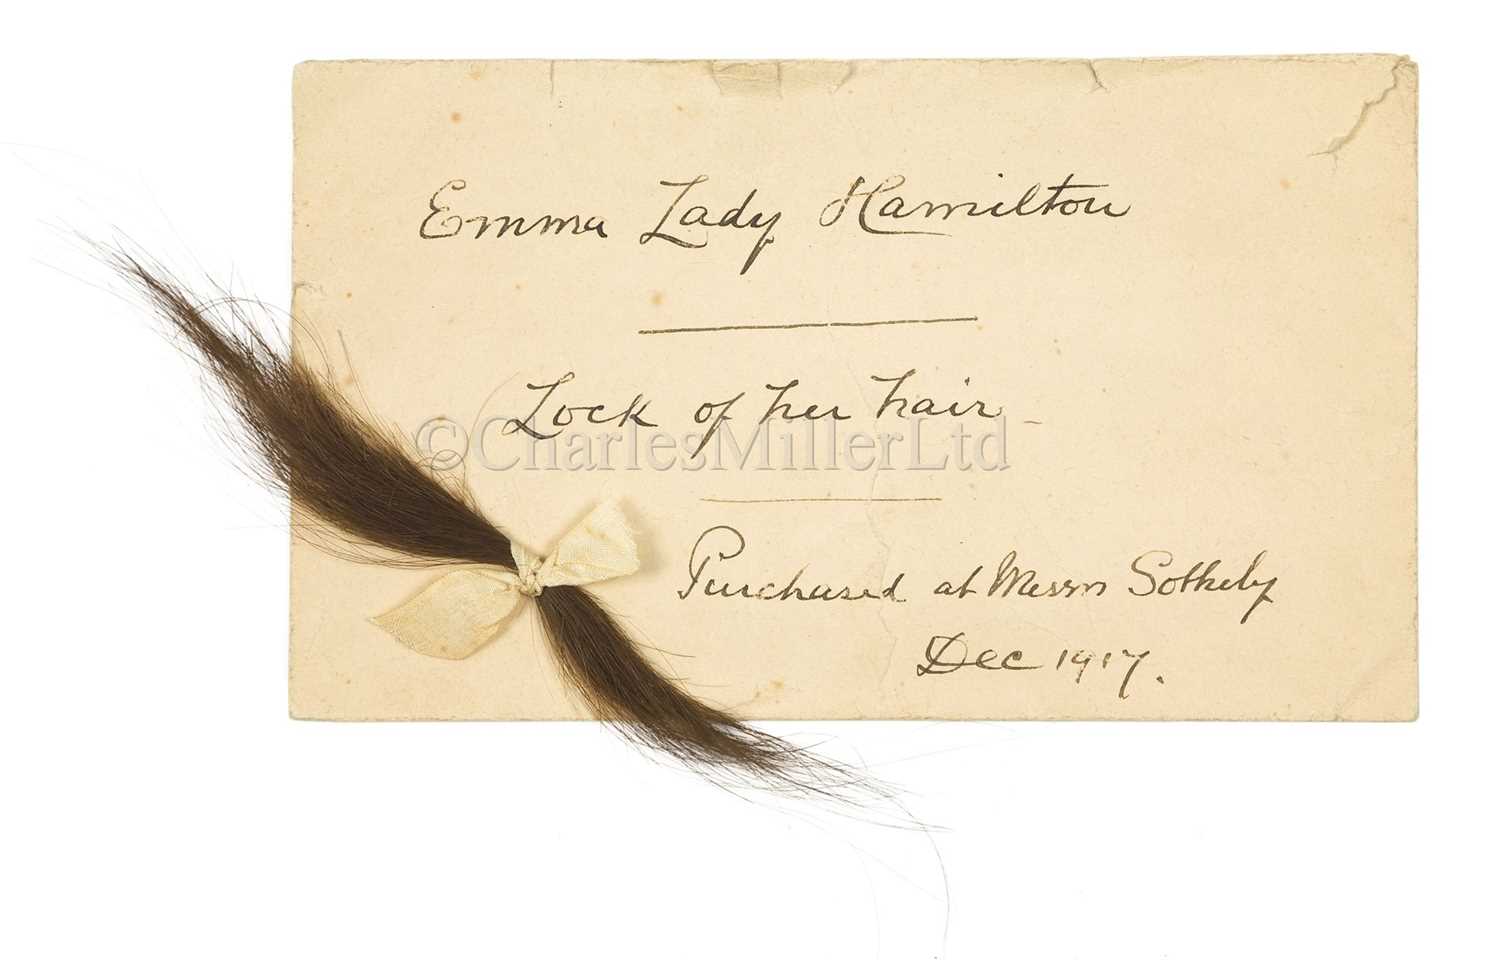 Emma Lady Hamilton
Lock of her hair
©CharlesMillerLtd
Purchased at Messrs Sotheby
Dec 1917.